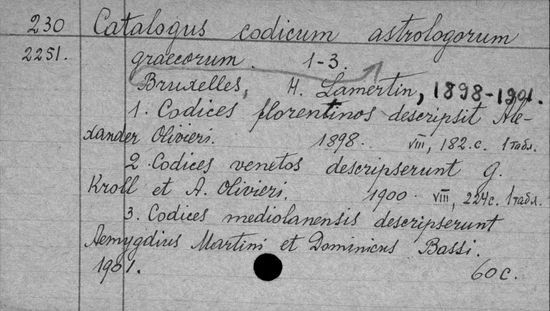 230 Catalogus codicum astrologorum
2251. graecorum. 1-3.
Bruxelles, H. Lamertin, 1898-1901.
1. Codices florentinos descripsit Ale-
xander Olivieri. 1898. VIII, 182 с. 1 табл.
2. Codices venetos descripserunt G.
Kroll et A. Olivieri. 1900. VIII, 224 с. 1 табл.
3. Codices mediolanensis descripserunt
Aemygdius Martini et Dominicus Bassi.
1901. 60 с.